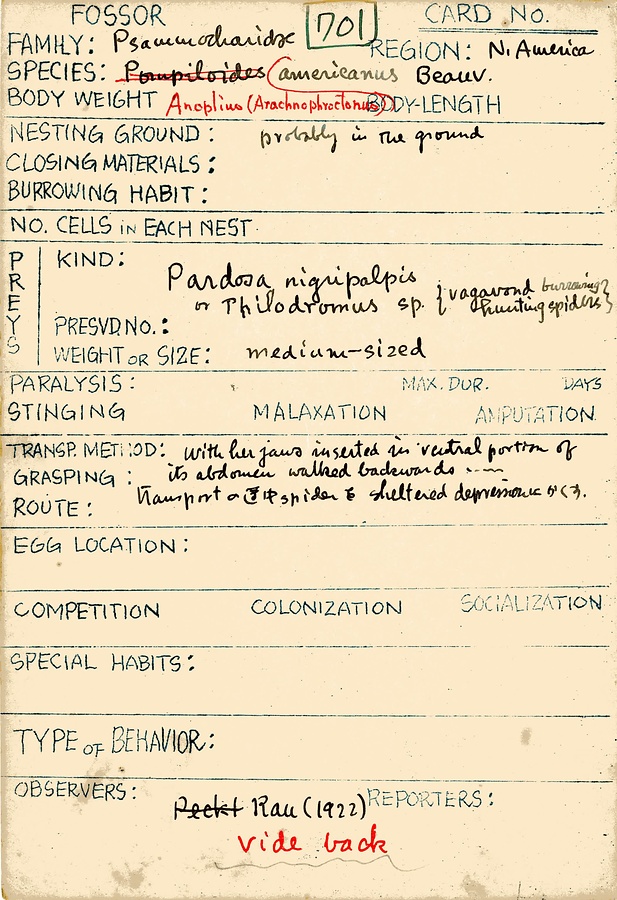 FOSSOR 701 CARD NO.
FAMILY: Psammocharidae REGION: N. America
SPECIES: Pompiloides americanus Beauv.
BODY WEIGHT Anoplius (Arachnophroctonus) BODY-LENGTH
NESTING GROUND: probably in the ground
CLOSING MATERIALS:
BURROWING HABIT:
NO. CELLS in EACH NEST
PREYS
KIND: Pardosa nigripalpis
or Philodromus sp. {vagavond burrowing?
hunting spiders}
PRESVD NO.:
WEIGHT OR SIZE: medium-sized
PARALYSIS: MAX. DUR. DAYS
STINGING MALAXATION AMPUTATION
TRANSP. METHOD: with her jaws inserted in ventral portion of
GRASPING: its abdomen walked backwards
ROUTE: Transport spider sheltered depression
EGG LOCATION:
COMPETITION COLONIZATION SOCIALIZATION
SPECIAL HABITS:
TYPE OF BEHAVIOR:
OBSERVERS: Peckt Rau (1922) REPORTERS:
vide back